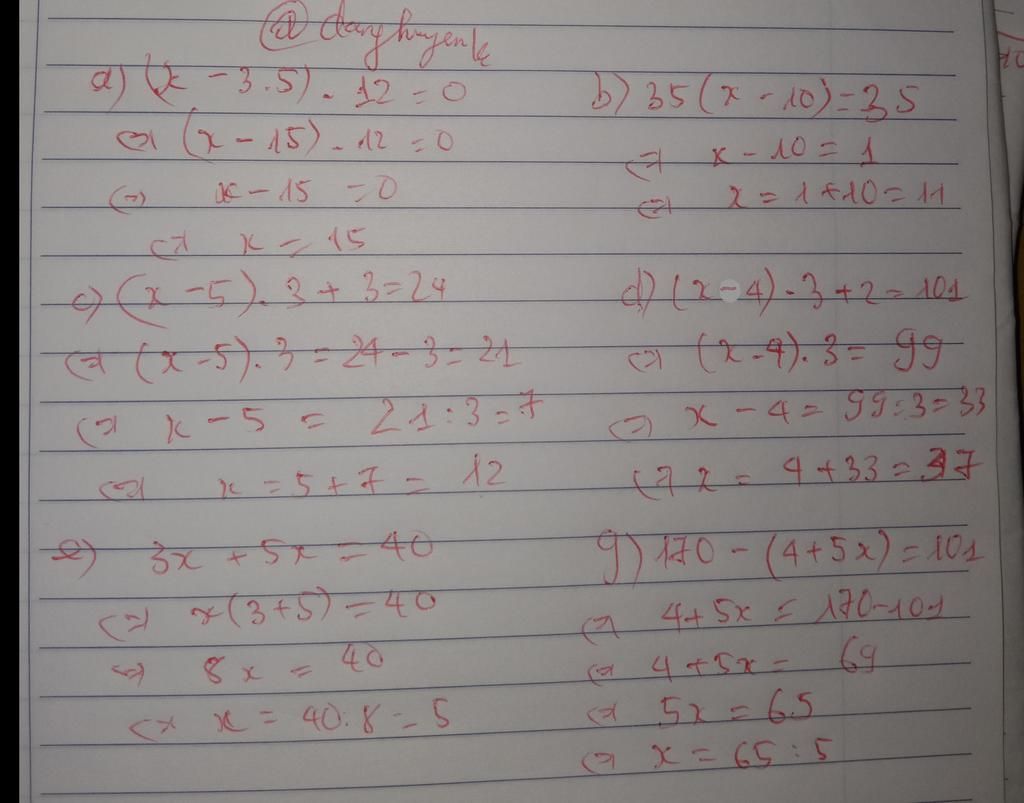 @danghuyenk
a) (x - 3.5) . 12 = 0
⇔ (x - 15) . 12 = 0
⇔ x - 15 = 0
⇔ x = 15
b) 35(x - 10) = 35
⇔ x - 10 = 1
⇔ x = 1 + 10 = 11
c) (x - 5) . 3 + 3 = 24
⇔ (x - 5) . 3 = 24 - 3 = 21
⇔ x - 5 = 21 : 3 = 7
⇔ x = 5 + 7 = 12
d) (x - 4) . 3 + 2 = 101
⇔ (x - 4) . 3 = 99
⇔ x - 4 = 99 : 3 = 33
⇔ x = 4 + 33 = 37
e) 3x + 5x = 40
⇔ x(3 + 5) = 40
⇔ 8x = 40
⇔ x = 40 : 8 = 5
g) 170 - (4 + 5x) = 101
⇔ 4 + 5x = 170 - 101
⇔ 4 + 5x = 69
⇔ 5x = 65
⇔ x = 65 : 5